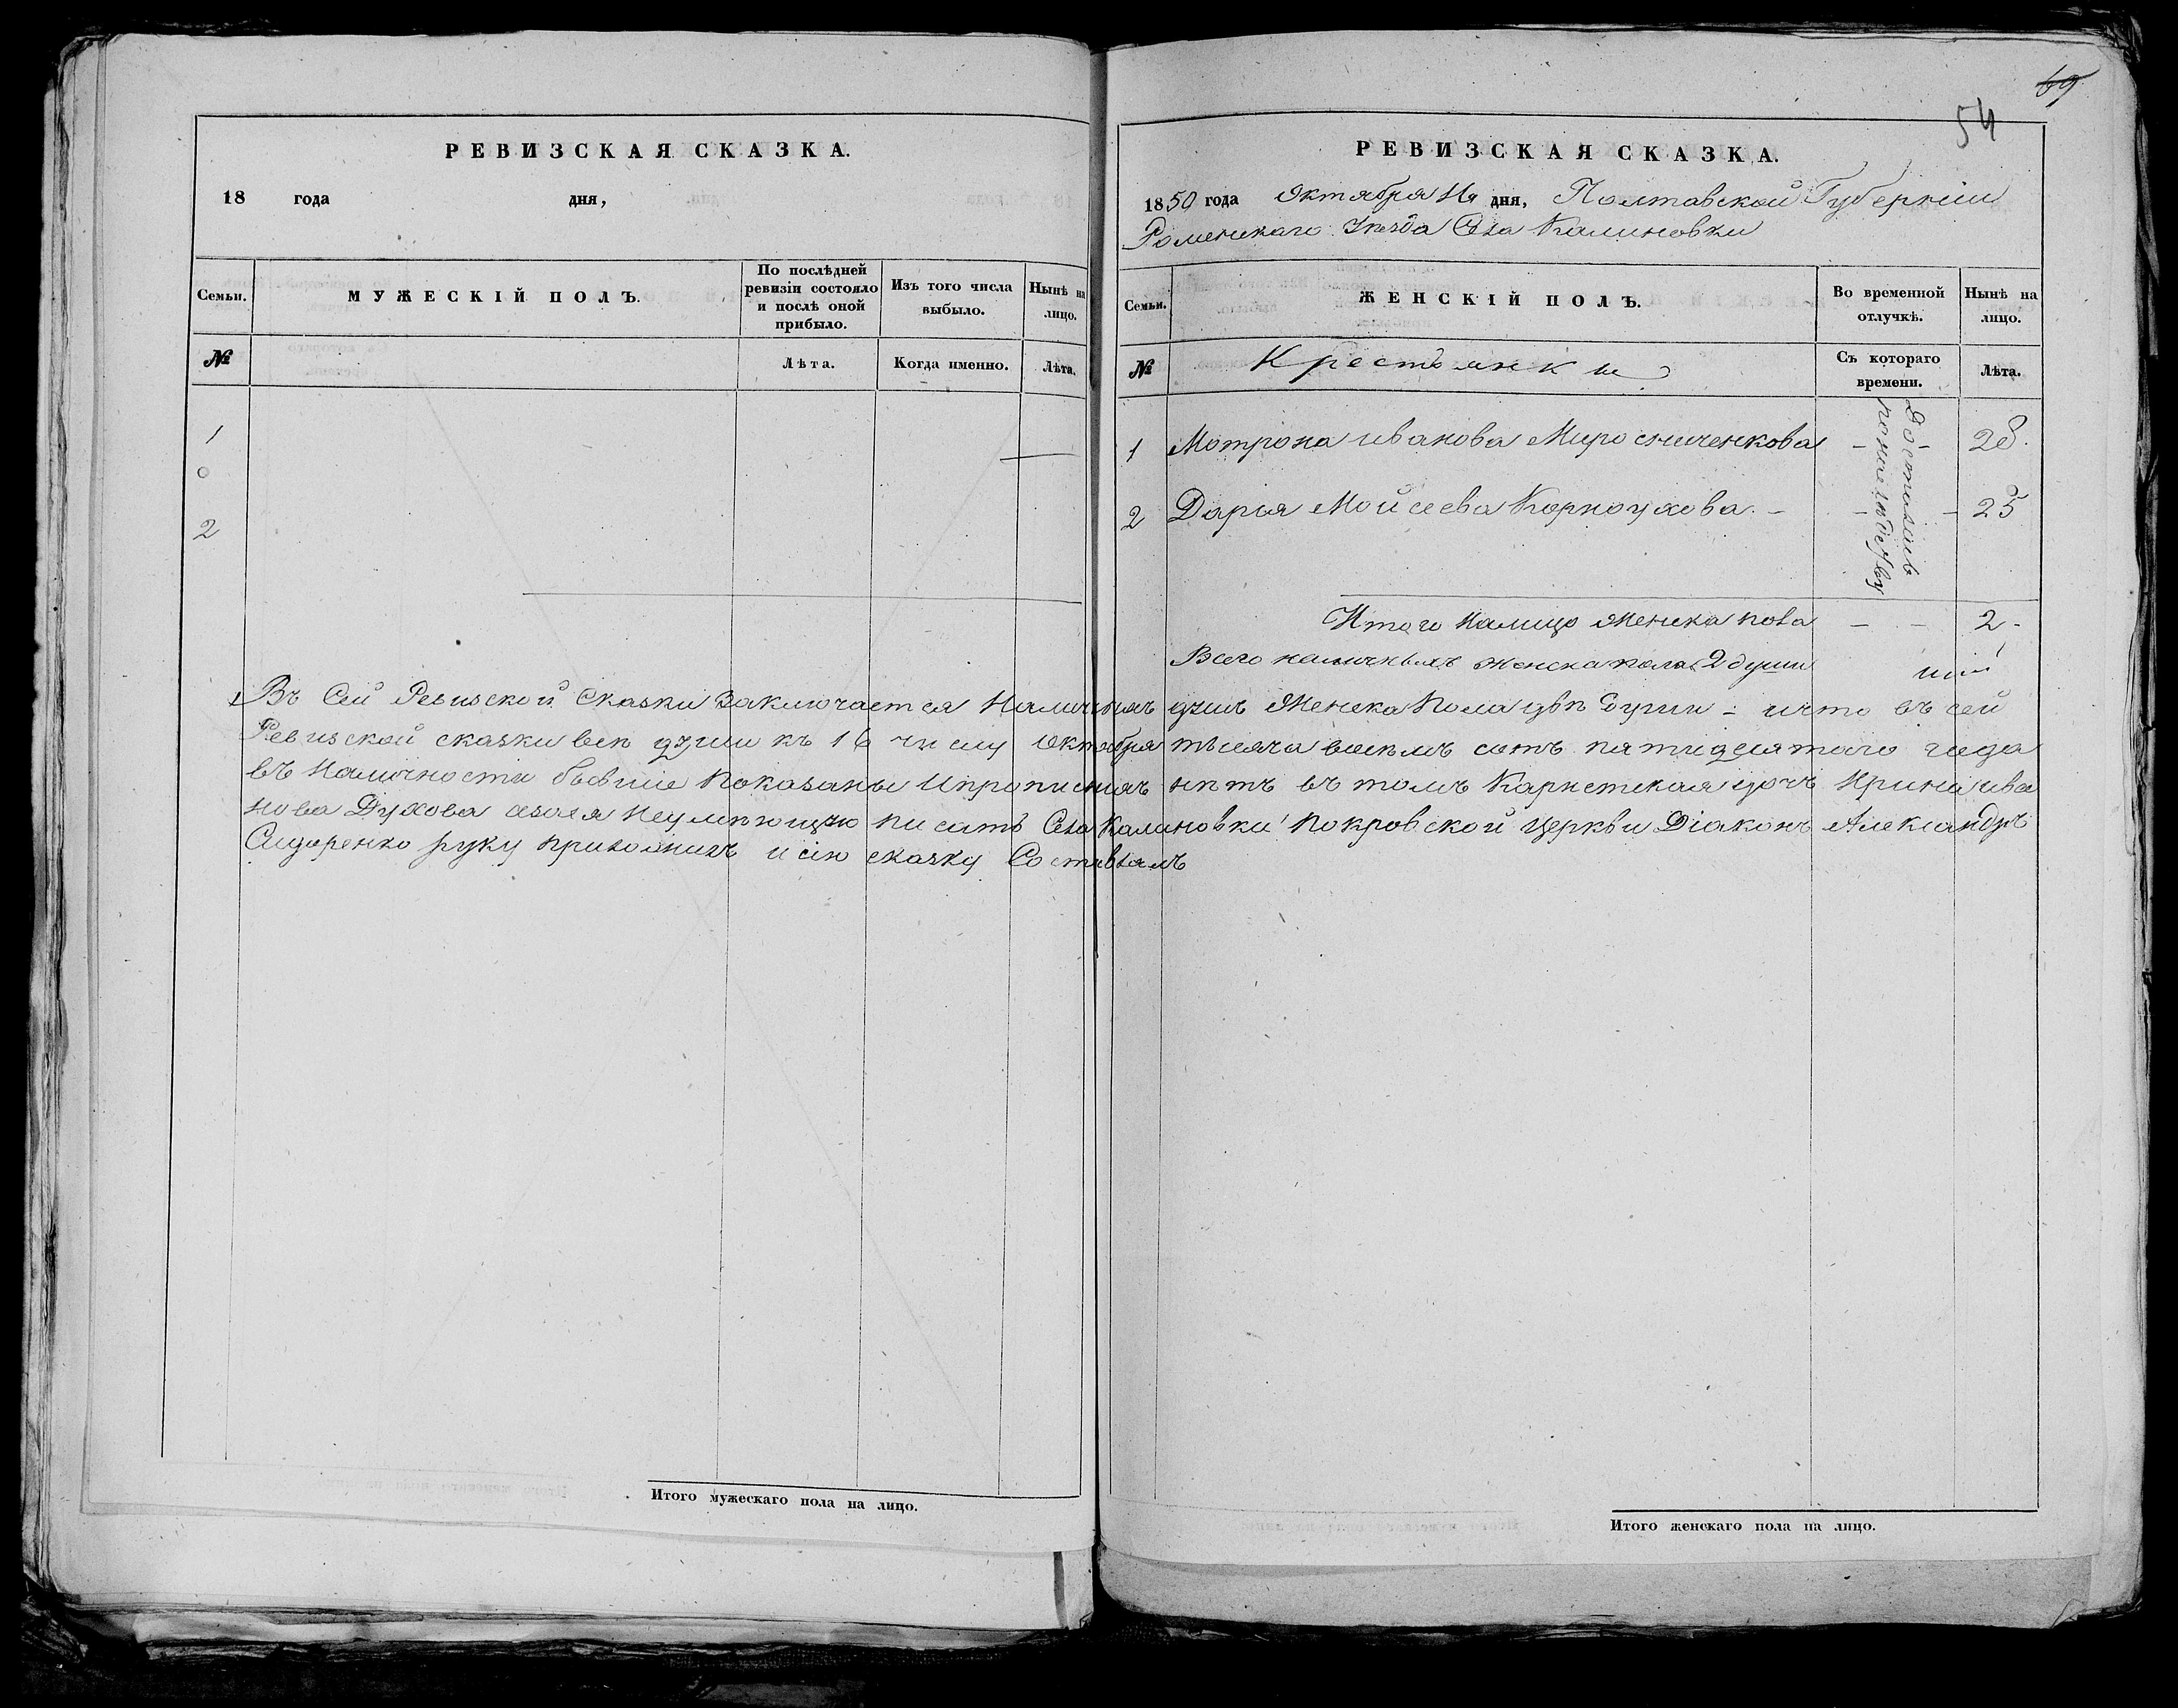 РЕВИЗСКАЯ СКАЗКА.
18 года дня,
Семьи. МУЖЕСКІЙ ПОЛЪ. По послѣдней ревизіи состояло и послѣ оной прибыло. Изъ того числа выбыло. Нынѣ на лицо.
№ Лѣта. Когда именно. Лѣта.
1
0
2
69
54
РЕВИЗСКАЯ СКАЗКА.
1850 года Октября дня, Полтавской Губерніи
Роменскаго Уѣзда Села Калиновки
Семьи. ЖЕНСКІЙ ПОЛЪ. Во временной отлучкѣ. Нынѣ на лицо.
№ Крестьянки Съ котораго времени. Лѣта.
1 Мотрона иванова Мирошниченкова - - 28.
2 Дарья Мойсеева Корноухова. - - - 25
Досталась
по наследству
Итого Налицо Женска пола - - 2 -
Всего наличныхъ женска пола 2 души
Въ Сей Ревизской Сказки Заключается Наличныхъ душъ Женска Пола двѣ Души - и что въ сей
Ревизской сказки всѣ души къ 16 числу Октября тысяча восемъ сотъ пятидесятаго года
въ Наличности бывшіе Показаны Ипрописныхъ нѣтъ въ томъ дочъ Ирина ива
нова Духова неумѣющую писатъ Села Калиновки Покровской Церкви Діаконъ Александръ
Сидоренко руку приложилъ и сію сказку Составлялъ
Итого мужескаго пола на лицо.
Итого женскаго пола на лицо.